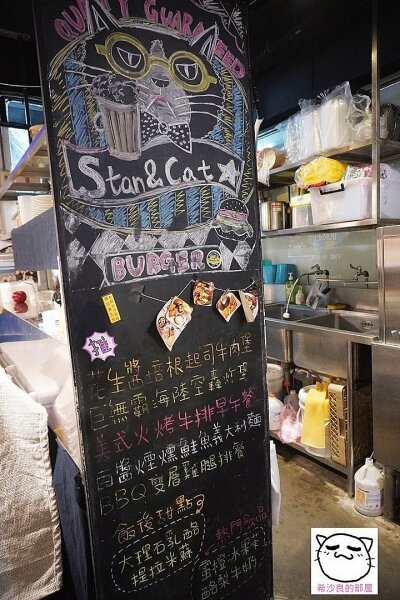 QUALITY GUARANTEED
Stan&Cat
BURGER
推
花生醬培根起司牛肉堡
巨無霸海陸空轟炸堡
美式火烤牛排早午餐
白醬煙燻鮭魚義大利麵
BBQ雙層雞腿排餐
飯後甜點
大理石乳酪
提拉米蘇
熱門飲品
蜜橙水果茶
酪梨牛奶
希沙良的部屋